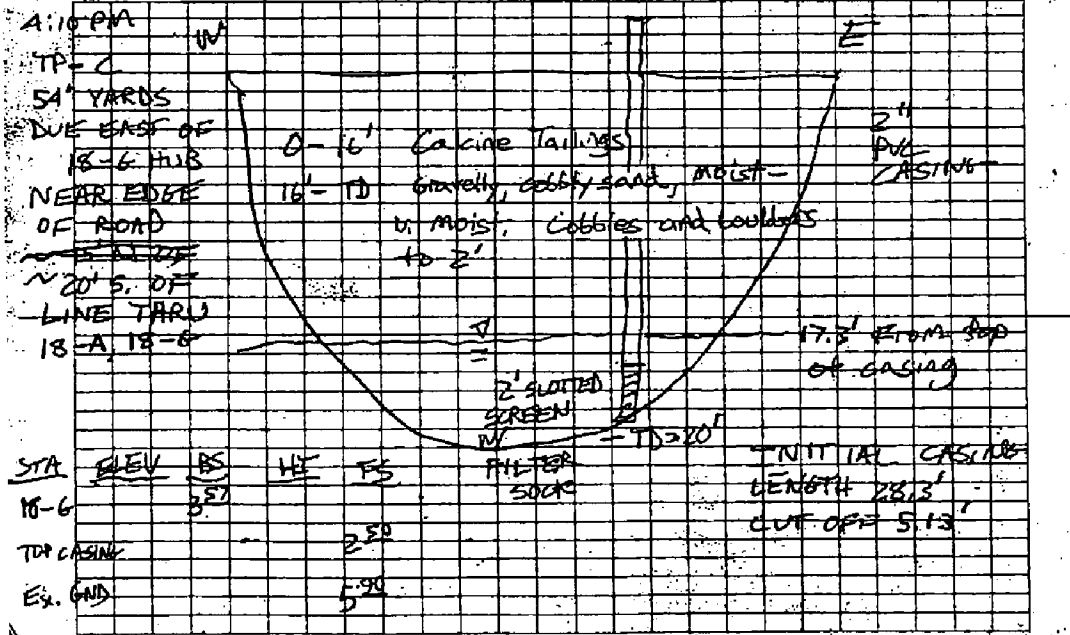 4:10 PM
W
E
TP-C
54' YARDS
DUE EAST OF
18-G HUB
NEAR EDGE
OF ROAD
~20' S. OF
LINE THRU
18-A, 18-G
0-16' Calcine Tailings
16'-TD Gravelly, cobbly sand, moist-
v. moist. Cobbles and boulders
to 2'
2"
PVC
CASING
17.3' From top
of casing
2' SLOTTED
SCREEN
W/
FILTER
SOCK
TD=20'
INITIAL CASING
LENGTH 28.3'
CUT OFF 5.13'
STA ELEV BS HI FS
18-G 3.57
TOP CASING 2.50
Ex. GND 5.90